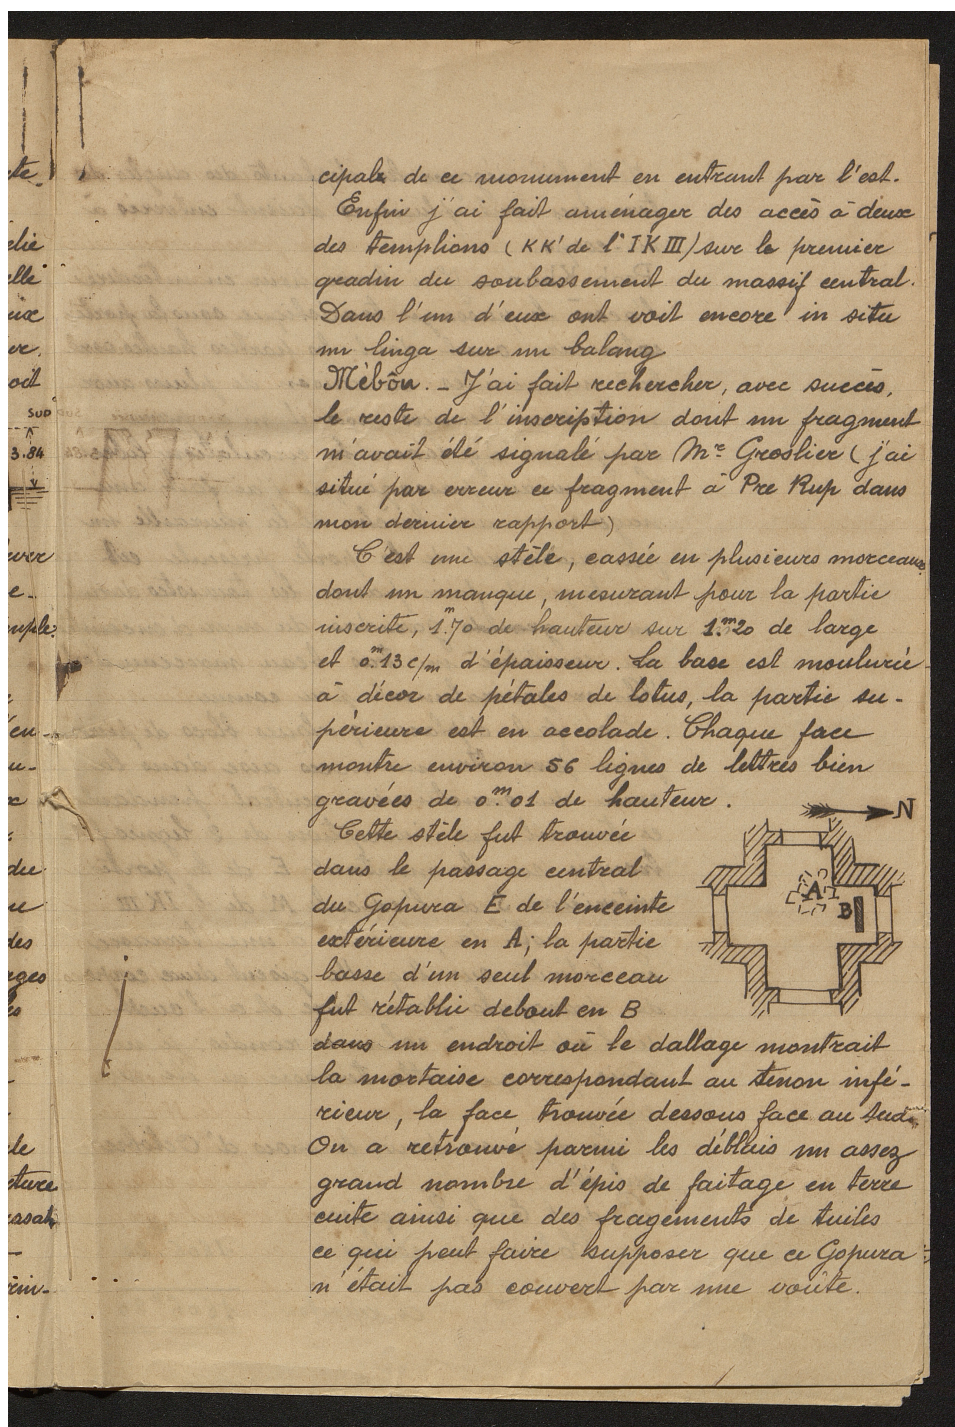 cipale de ce monument en entrant par l'est.
Enfin j'ai fait aménager des accès à deux
des templions (KK' de l'IKIII) sur le premier
gradin du soubassement du massif central.
Dans l'un d'eux ont voit encore in situ
un linga sur un balang
Mébôn. - J'ai fait rechercher, avec succès,
le reste de l'inscription dont un fragment
m'avait été signalé par Mr Groslier (j'ai
situé par erreur ce fragment à Pre Rup dans
mon dernier rapport)
C'est une stèle, cassée en plusieurs morceaux
dont un manque, mesurant pour la partie
inscrite, 1m.70 de hauteur sur 1m.20 de large
et 0m.13 c/m d'épaisseur. La base est moulurée
à décor de pétales de lotus, la partie su-
périeure est en accolade. Chaque face
montre environ 56 lignes de lettres bien
gravées de 0m.01 de hauteur.
N
Cette stèle fut trouvée
dans le passage central
A
du Gopura E de l'enceinte
B
extérieure en A; la partie
basse d'un seul morceau
fut rétablie debout en B
dans un endroit où le dallage montrait
la mortaise correspondant au tenon infé-
rieur, la face trouvée dessous face au Sud.
On a retrouvé parmi les déblais un assez
grand nombre d'épis de faitage en terre
cuite ainsi que des fragements de tuiles
ce qui peut faire supposer que ce Gopura
n'était pas couvert par une voûte.
SUD
3.84